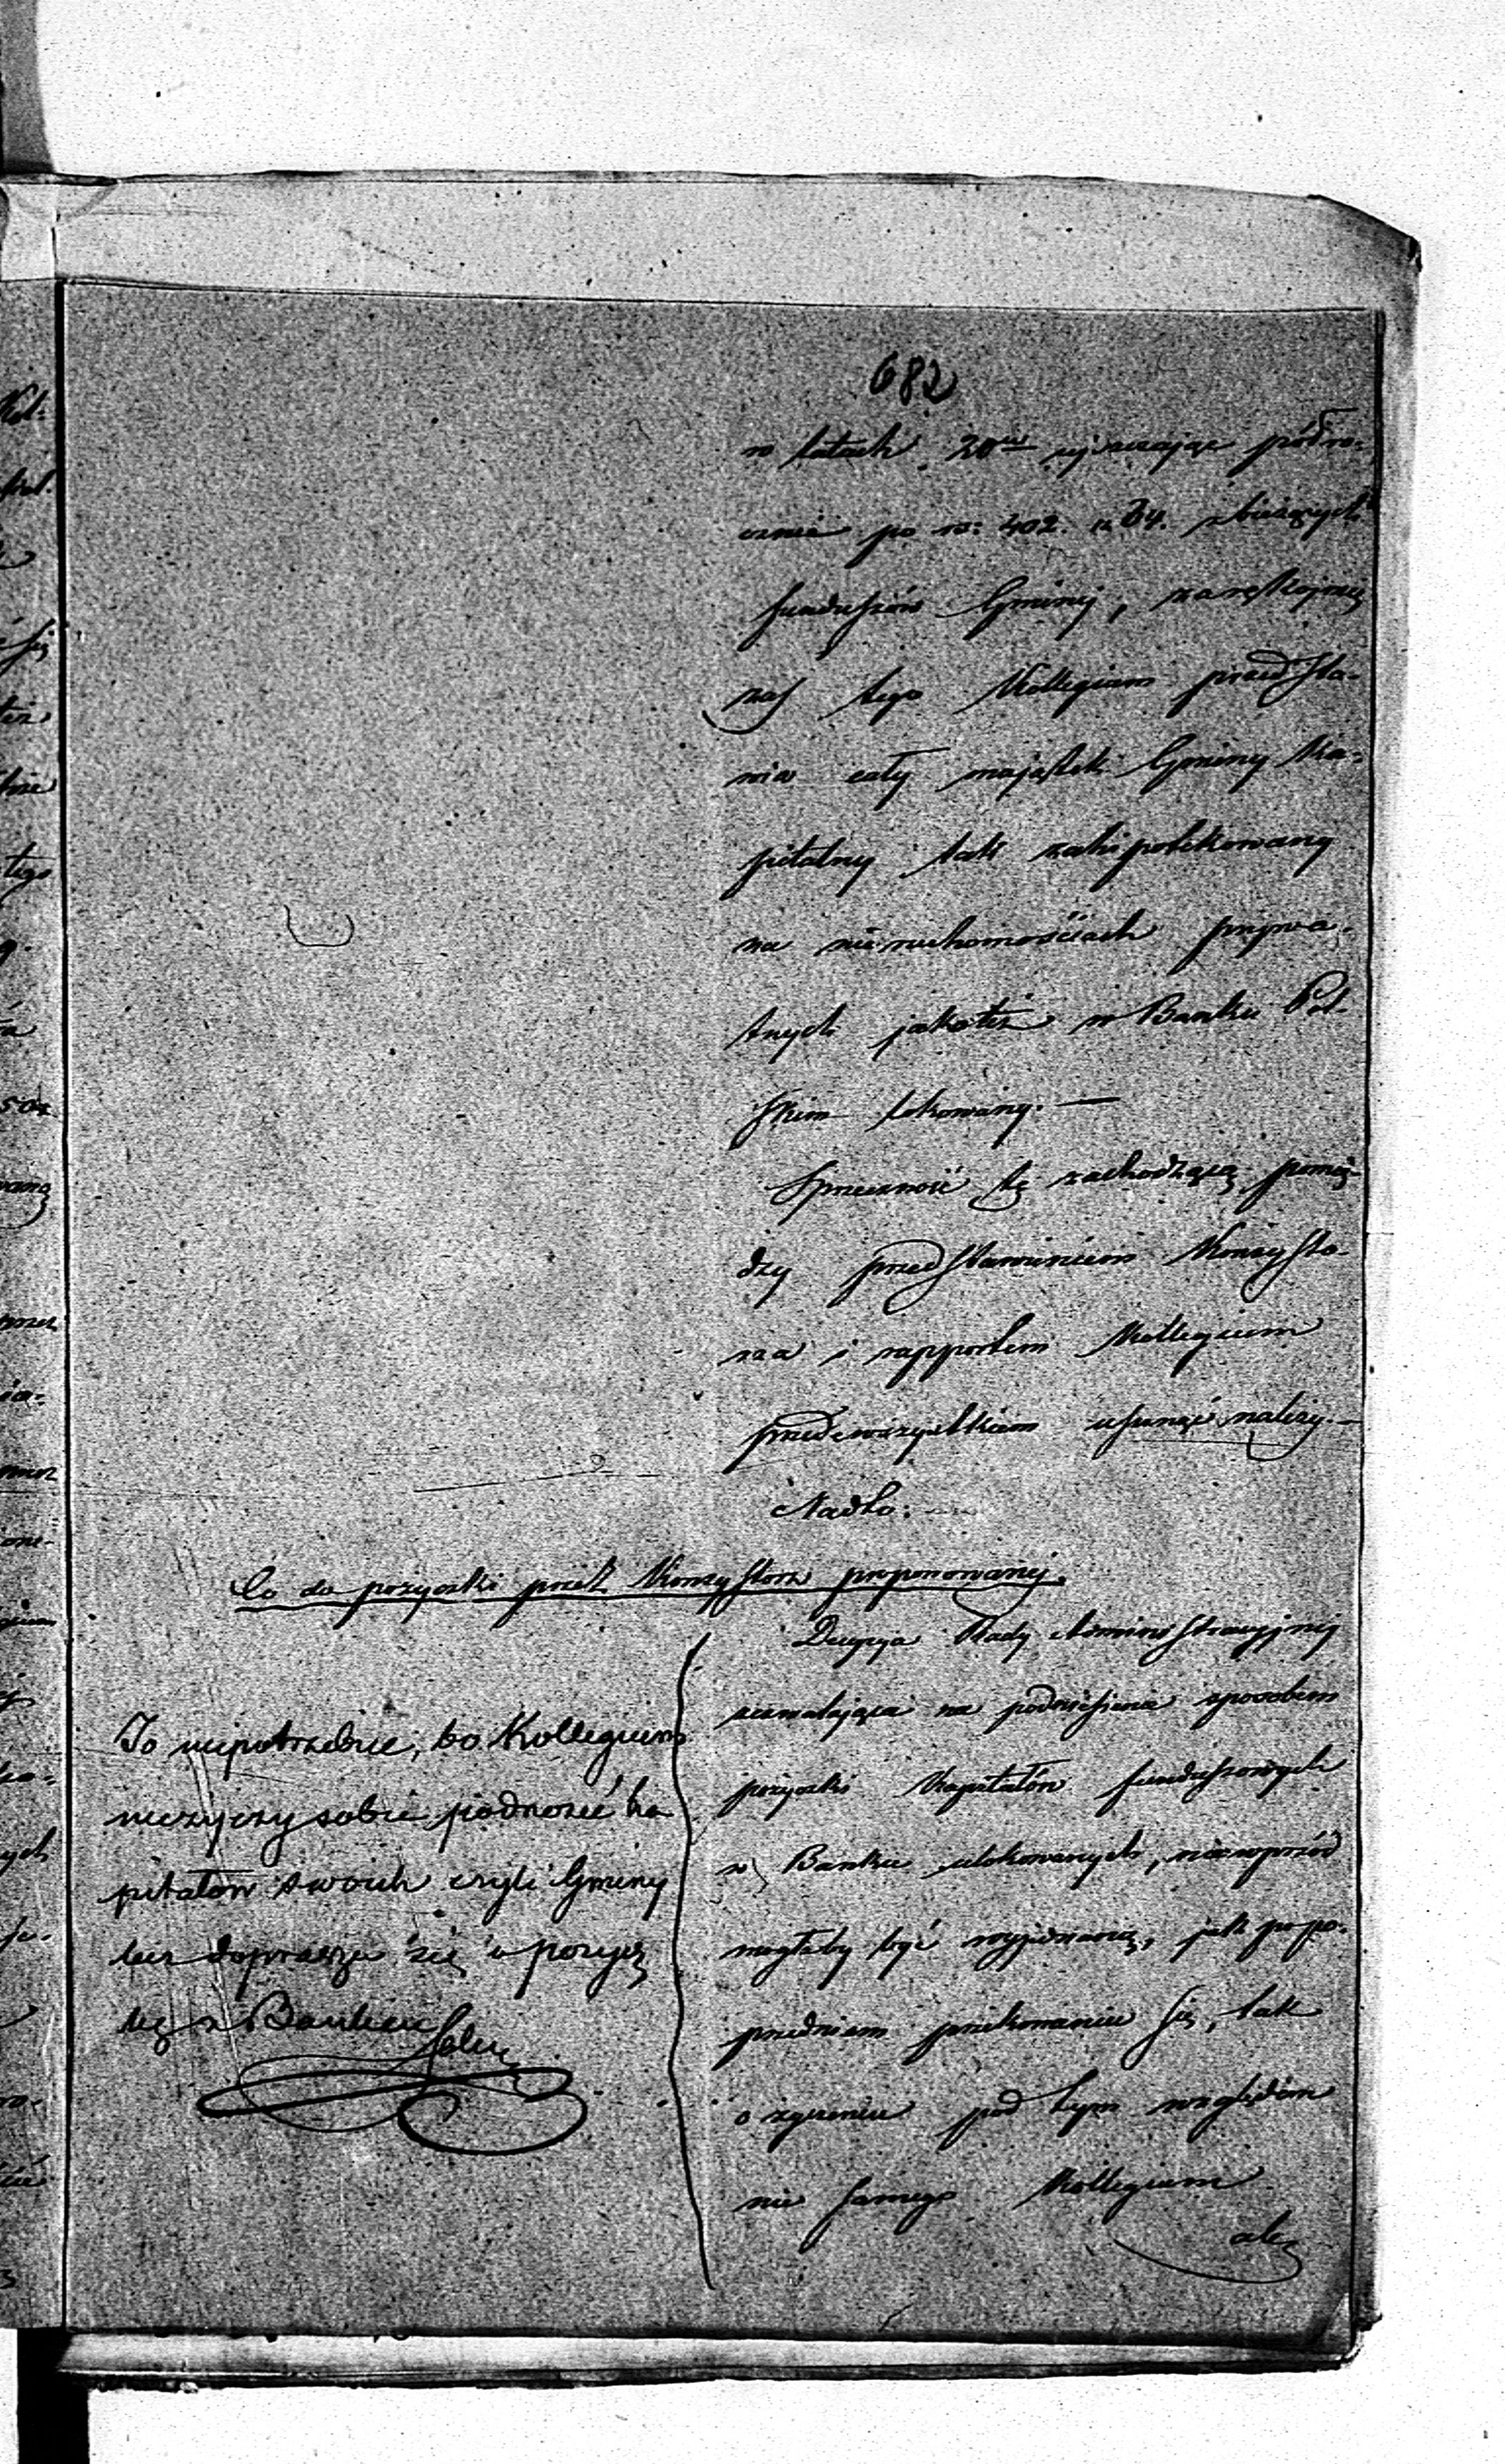 682
w latach 20tu ujszczając półro-
cznie po rs: 402. k. 84. z bieżących
funduszów Gminy, za rękojmią
zaś tego Kollegium przedsta-
wia cały majątek Gminy Ka-
pitalny tak zahipotekowany
na nieruchomościach prywa-
tnych jakoteż w Banku Pol-
skim lokowany. —
Sprzeczność tę zachodzącą pomię-
dzy przedstawieniem Konsysto-
rza i rapportem Kollegium
przedewszystkiem usunąć należy. —
Nadto:
Co do pożyczki przez Konsystorz proponowanej.
Decyzya Rady Administracyjnej
zezwalająca na podniesienie sposobem
pożyczki Kapitałów funduszowych
w Banku ulokowanych, niewprzód
mogłaby być wyjednaną, jak po po-
przedniem przekonaniu się, tak
o życzeniu pod tym względem
nie samego Kollegium
ale
To niepotrzebne, bo Kollegium
nieżyczy sobie podnosić ka
pitałów swoich czyli Gminy
lecz doprasza się o pożycz
kę z Banku